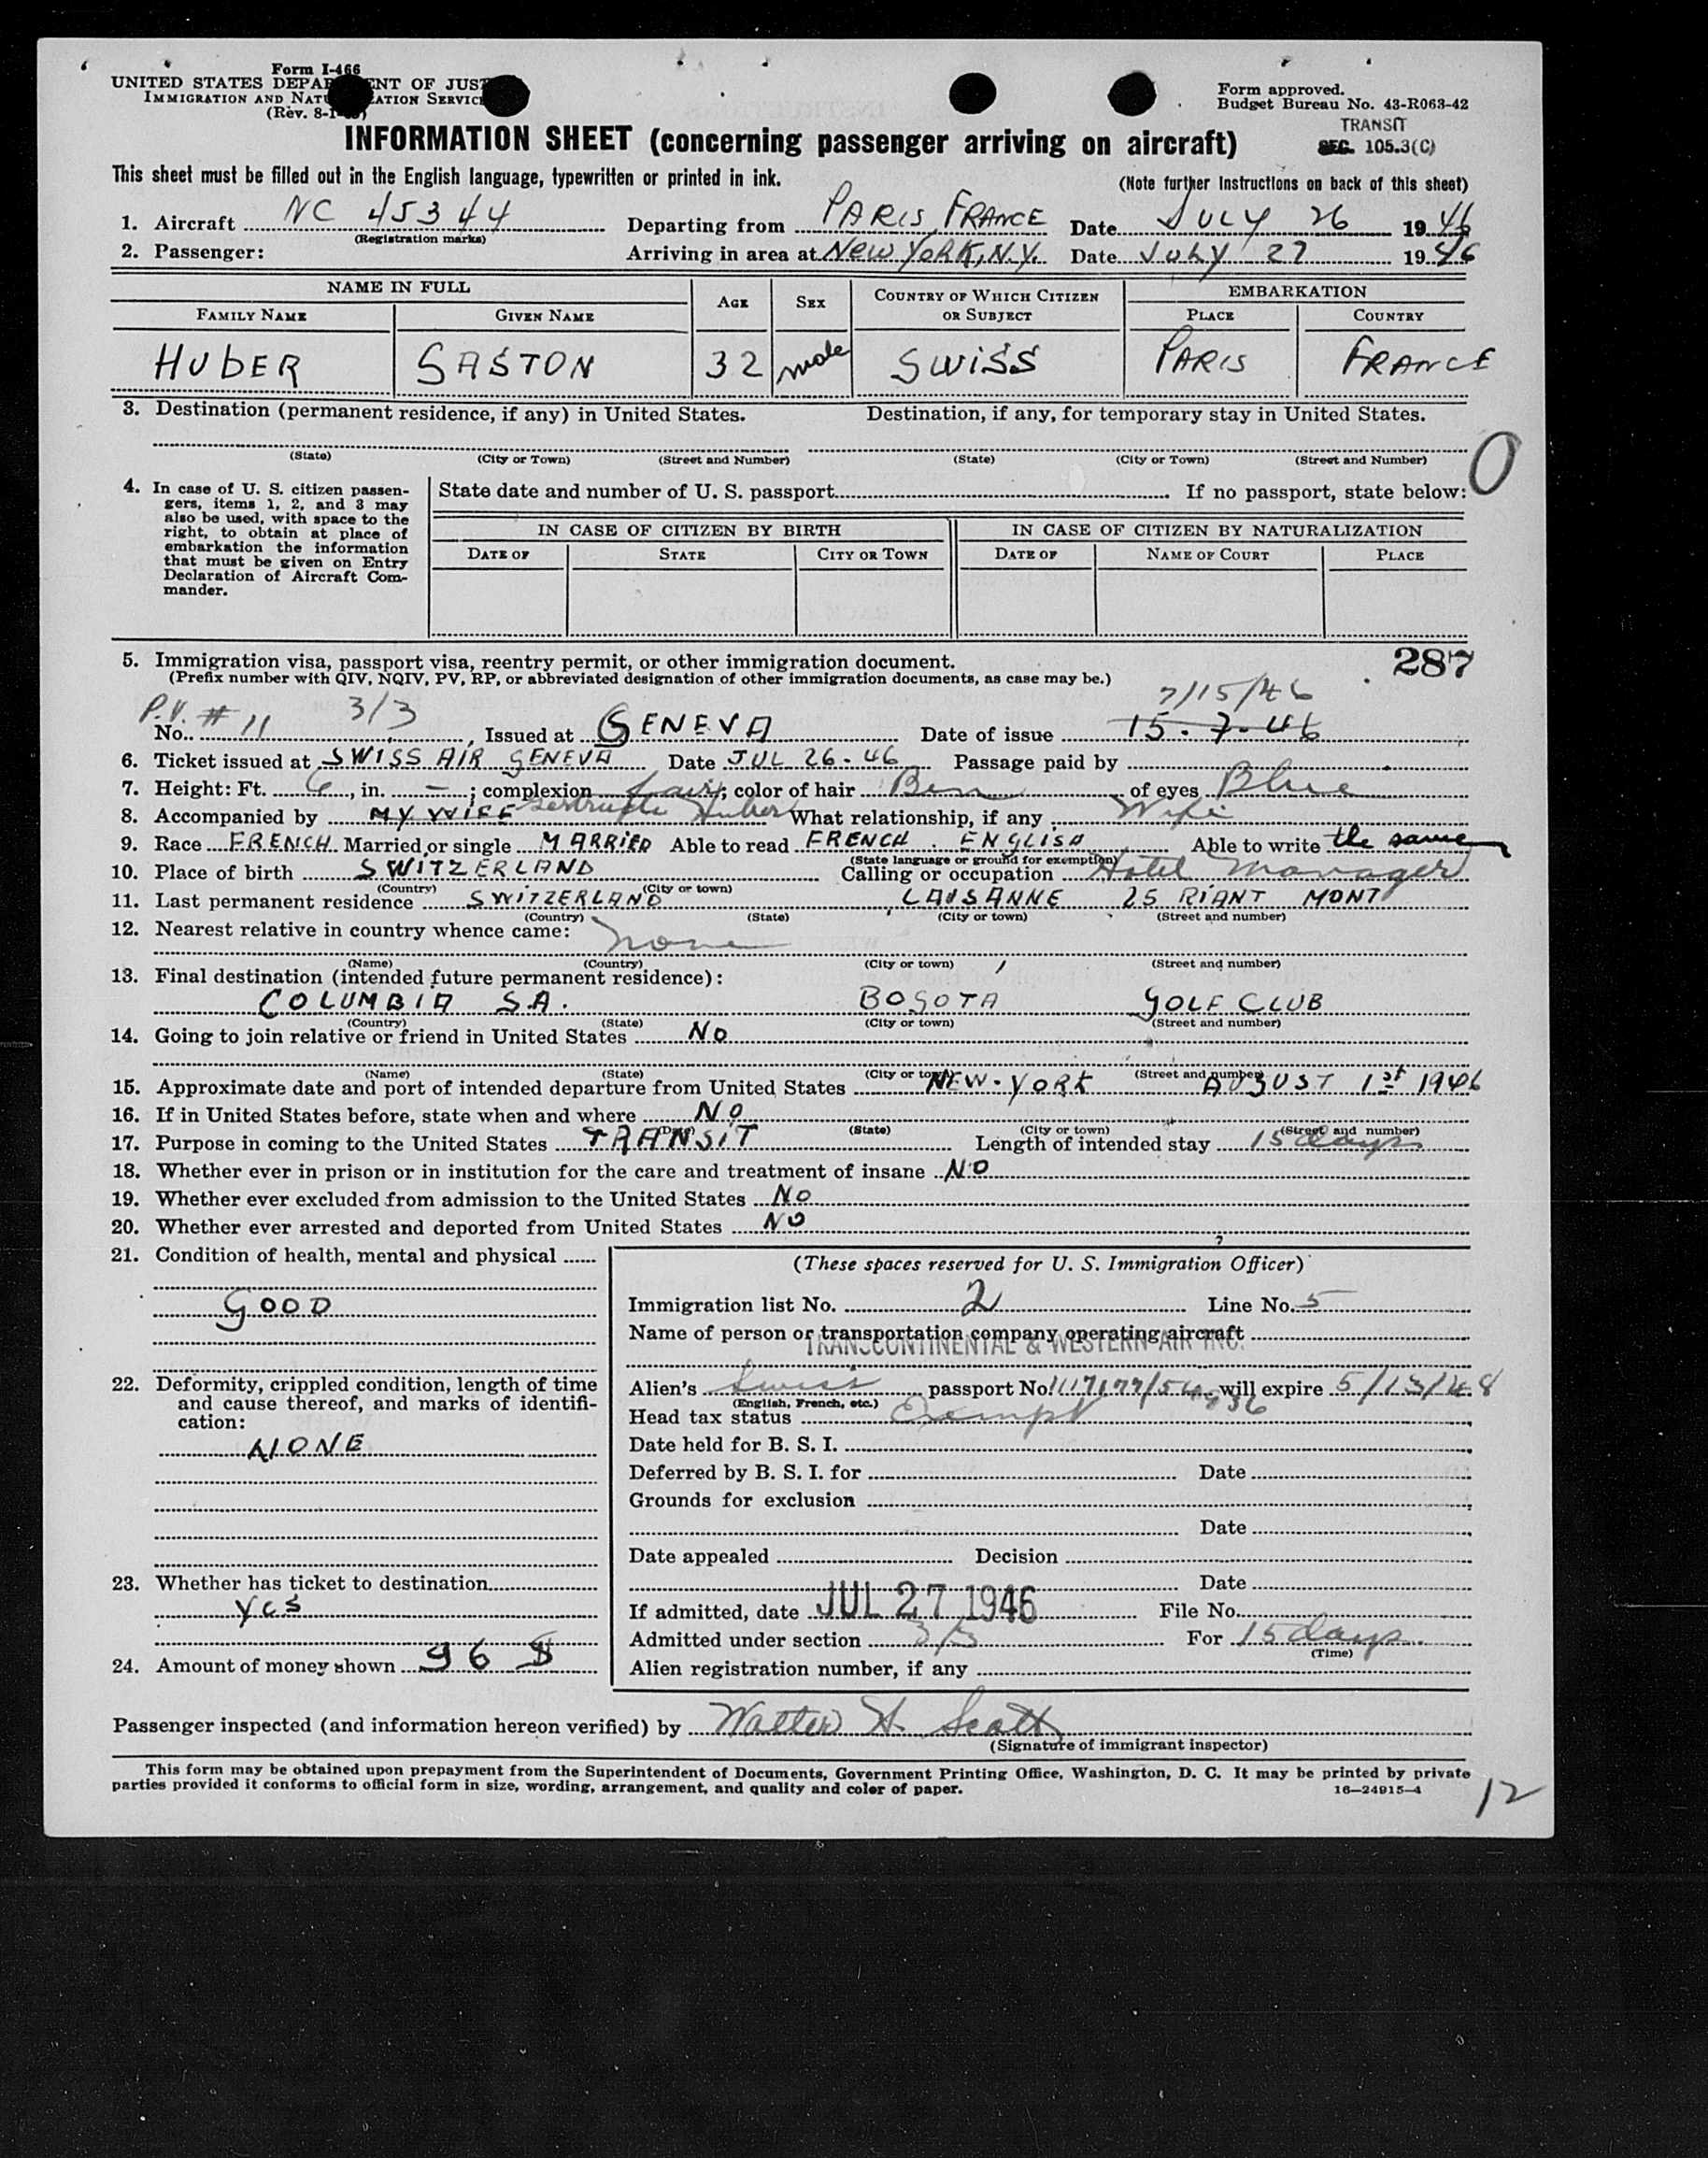 Form I-466
UNITED STATES DEPARTMENT OF JUSTICE
IMMIGRATION AND NATURALIZATION SERVICE
(Rev. 8-1-
Form approved.
Budget Bureau No. 43-R063-42
TRANSIT
SEC. 105.3(C)
INFORMATION SHEET (concerning passenger arriving on aircraft)
This sheet must be filled out in the English language, typewritten or printed in ink. (Note further instructions on back of this sheet)
1. Aircraft NC 45344 Departing from PARIS, FRANCE Date JULY 26 1946
(Registration marks)
2. Passenger: Arriving in area at NEW YORK, N.Y. Date JULY 27 1946
NAME IN FULL AGE SEX COUNTRY OF WHICH CITIZEN OR SUBJECT EMBARKATION
FAMILY NAME GIVEN NAME PLACE COUNTRY
HUBER GASTON 32 male SWISS PARIS FRANCE
3. Destination (permanent residence, if any) in United States. Destination, if any, for temporary stay in United States.
(State) (City or Town) (Street and Number) (State) (City or Town) (Street and Number)
0
4. In case of U. S. citizen passengers, items 1, 2, and 3 may also be used, with space to the right, to obtain at place of embarkation the information that must be given on Entry Declaration of Aircraft Commander.
State date and number of U. S. passport If no passport, state below:
IN CASE OF CITIZEN BY BIRTH IN CASE OF CITIZEN BY NATURALIZATION
DATE OF STATE CITY OR TOWN DATE OF NAME OF COURT PLACE
5. Immigration visa, passport visa, reentry permit, or other immigration document. 287
(Prefix number with QIV, NQIV, PV, RP, or abbreviated designation of other immigration documents, as case may be.)
7/15/46
P.V. # 11 3/3
No. , Issued at GENEVA Date of issue 15-7-46
6. Ticket issued at SWISS AIR GENEVA Date JUL 26-46 Passage paid by
7. Height: Ft. 6, in. –; complexion fair; color of hair Brn of eyes Blue
8. Accompanied by MY WIFE Gertrude Huber What relationship, if any Wife
9. Race FRENCH Married or single MARRIED Able to read FRENCH . ENGLISH Able to write the same
(State language or ground for exemption)
10. Place of birth SWITZERLAND Calling or occupation Hotel Manager
(Country) (City or town)
11. Last permanent residence SWITZERLAND LAUSANNE 25 RIANT MONT
(Country) (State) (City or town) (Street and number)
12. Nearest relative in country whence came: none
(Name) (Country) (City or town) (Street and number)
13. Final destination (intended future permanent residence):
COLUMBIA S.A. BOGOTA GOLF CLUB
(Country) (State) (City or town) (Street and number)
14. Going to join relative or friend in United States NO
(Name) (State) (City or town) (Street and number)
15. Approximate date and port of intended departure from United States NEW-YORK AUGUST 1st 1946
16. If in United States before, state when and where NO
(Date) (State) (City or town) (Street and number)
17. Purpose in coming to the United States TRANSIT Length of intended stay 15 days
18. Whether ever in prison or in institution for the care and treatment of insane NO
19. Whether ever excluded from admission to the United States NO
20. Whether ever arrested and deported from United States NO
21. Condition of health, mental and physical
GOOD
22. Deformity, crippled condition, length of time and cause thereof, and marks of identification:
NONE
23. Whether has ticket to destination
YES
24. Amount of money shown 96 $
(These spaces reserved for U. S. Immigration Officer)
Immigration list No. 2 Line No. 5
Name of person or transportation company operating aircraft
TRANSCONTINENTAL & WESTERN AIR INC.
Alien's Swiss passport No. will expire 5/13/48
(English, French, etc.)
Head tax status Exempt
Date held for B. S. I.
Deferred by B. S. I. for Date
Grounds for exclusion
Date
Date appealed Decision
Date
If admitted, date JUL 27 1946 File No.
Admitted under section 3/3 For 15 days
(Time)
Alien registration number, if any
Passenger inspected (and information hereon verified) by Walter H. Scott
(Signature of immigrant inspector)
This form may be obtained upon prepayment from the Superintendent of Documents, Government Printing Office, Washington, D. C. It may be printed by private
parties provided it conforms to official form in size, wording, arrangement, and quality and color of paper. 16—24915-4
12